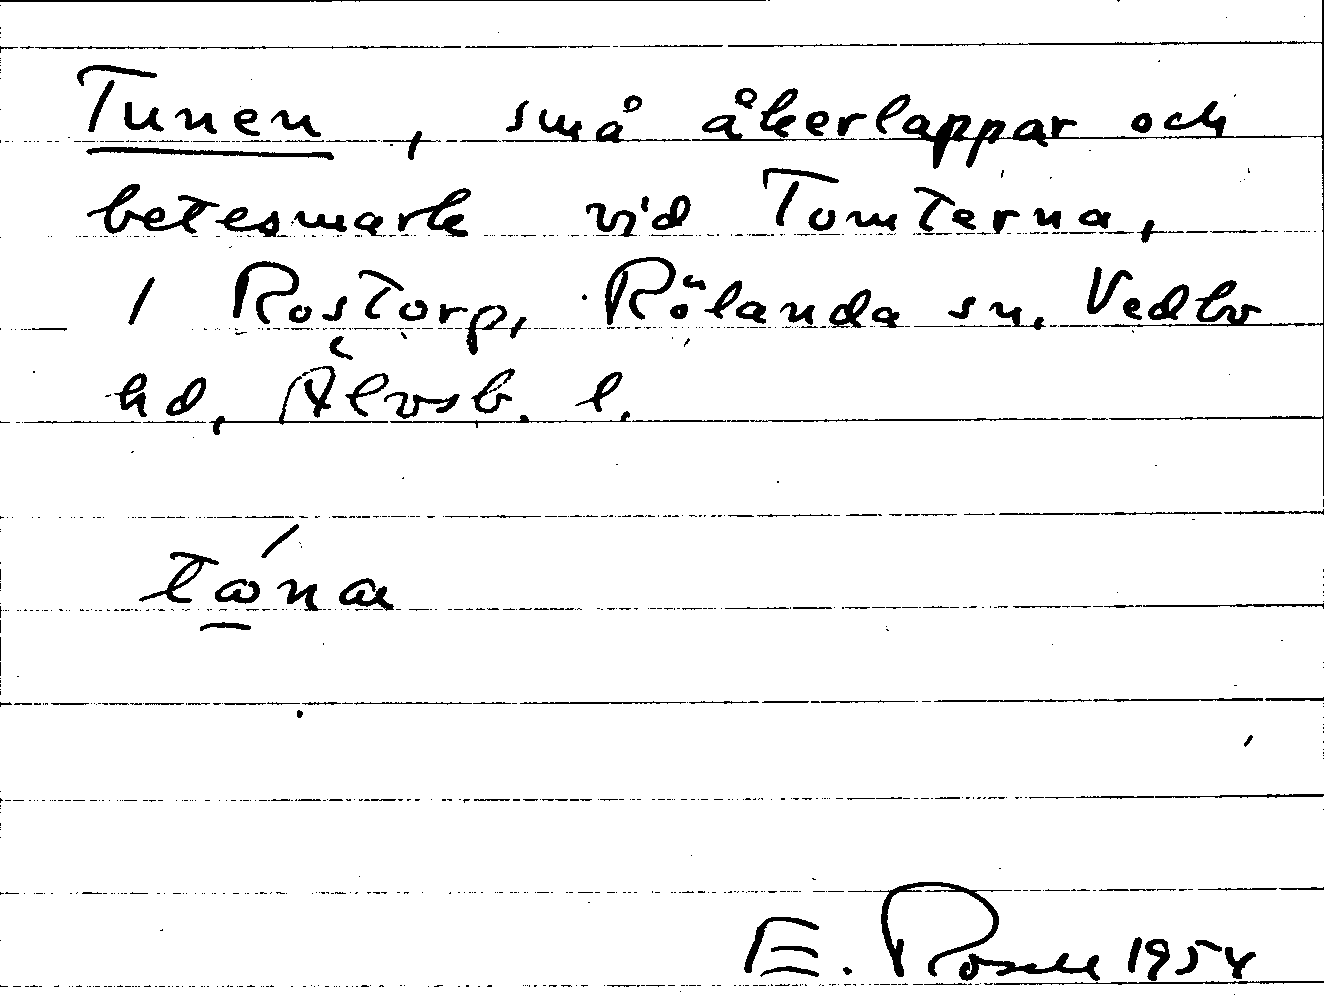 Tunen, små åkerlappar och
betesmark vid Tomterna,
1 Rostorp, Rölanda sn. Vedbo
hd, Älvsb. l.
E. Rosell 1954